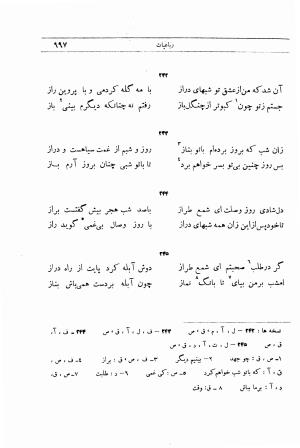 رباعیات
۹۹۷
۲۴۲
آن شد که من از عشق تو شبهای دراز با مه گله کردمی و با پروین راز
جستم ز تو چون۱ کبوتر از چنگل باز رفتم نه چنانکه دیگرم بینی۲ باز
۲۴۳
زان شب که بروز برده‌ام باتو بناز۳ روز و شبم از غمت سیاهست و دراز
بس روز چنین بی‌تو بسر خواهم برد۴ تا باتو شبی چنان بروز آرم باز
۲۴۴
دل‌شادی روز وصلت ای شمع طراز باصد شب هجر بیش گفتست براز
تاخود پس از این زان همه شبهای دراز با روز وصال بی‌غمی۵ گوید راز
۲۴۵
گر در طلب۶ صحبتم ای شمع طراز دوش آبله کرد پایت از راه دراز
امشب بر من بپای۷ تا بانگ۸ نماز چون آبله بردست همی‌باش بناز
نسخه ها : ۲۴۲ - ل ، آ ، م ، ق ، ص ۲۴۳ - ف ، ل ، آ ، ق ، ص ۲۴۴ - ف ، آ ،
ق ، ص ۲۴۵ - ل ، ت ، آ ، د ، ق ، ص
۱ـ ص ، ق : چو جهد ۲ـ بینیم دیگر ۳ـ ف ، ص ، ق : براز ۴ـ ف ، ص ،
ق ، آ : که باتو شب خواهم کرد ۵ـ ص : کی غمی ۶ـ د : بطلب ۷ـ ص ، ق ،
د ، آ : برما بباش ۸ـ ق : وقت